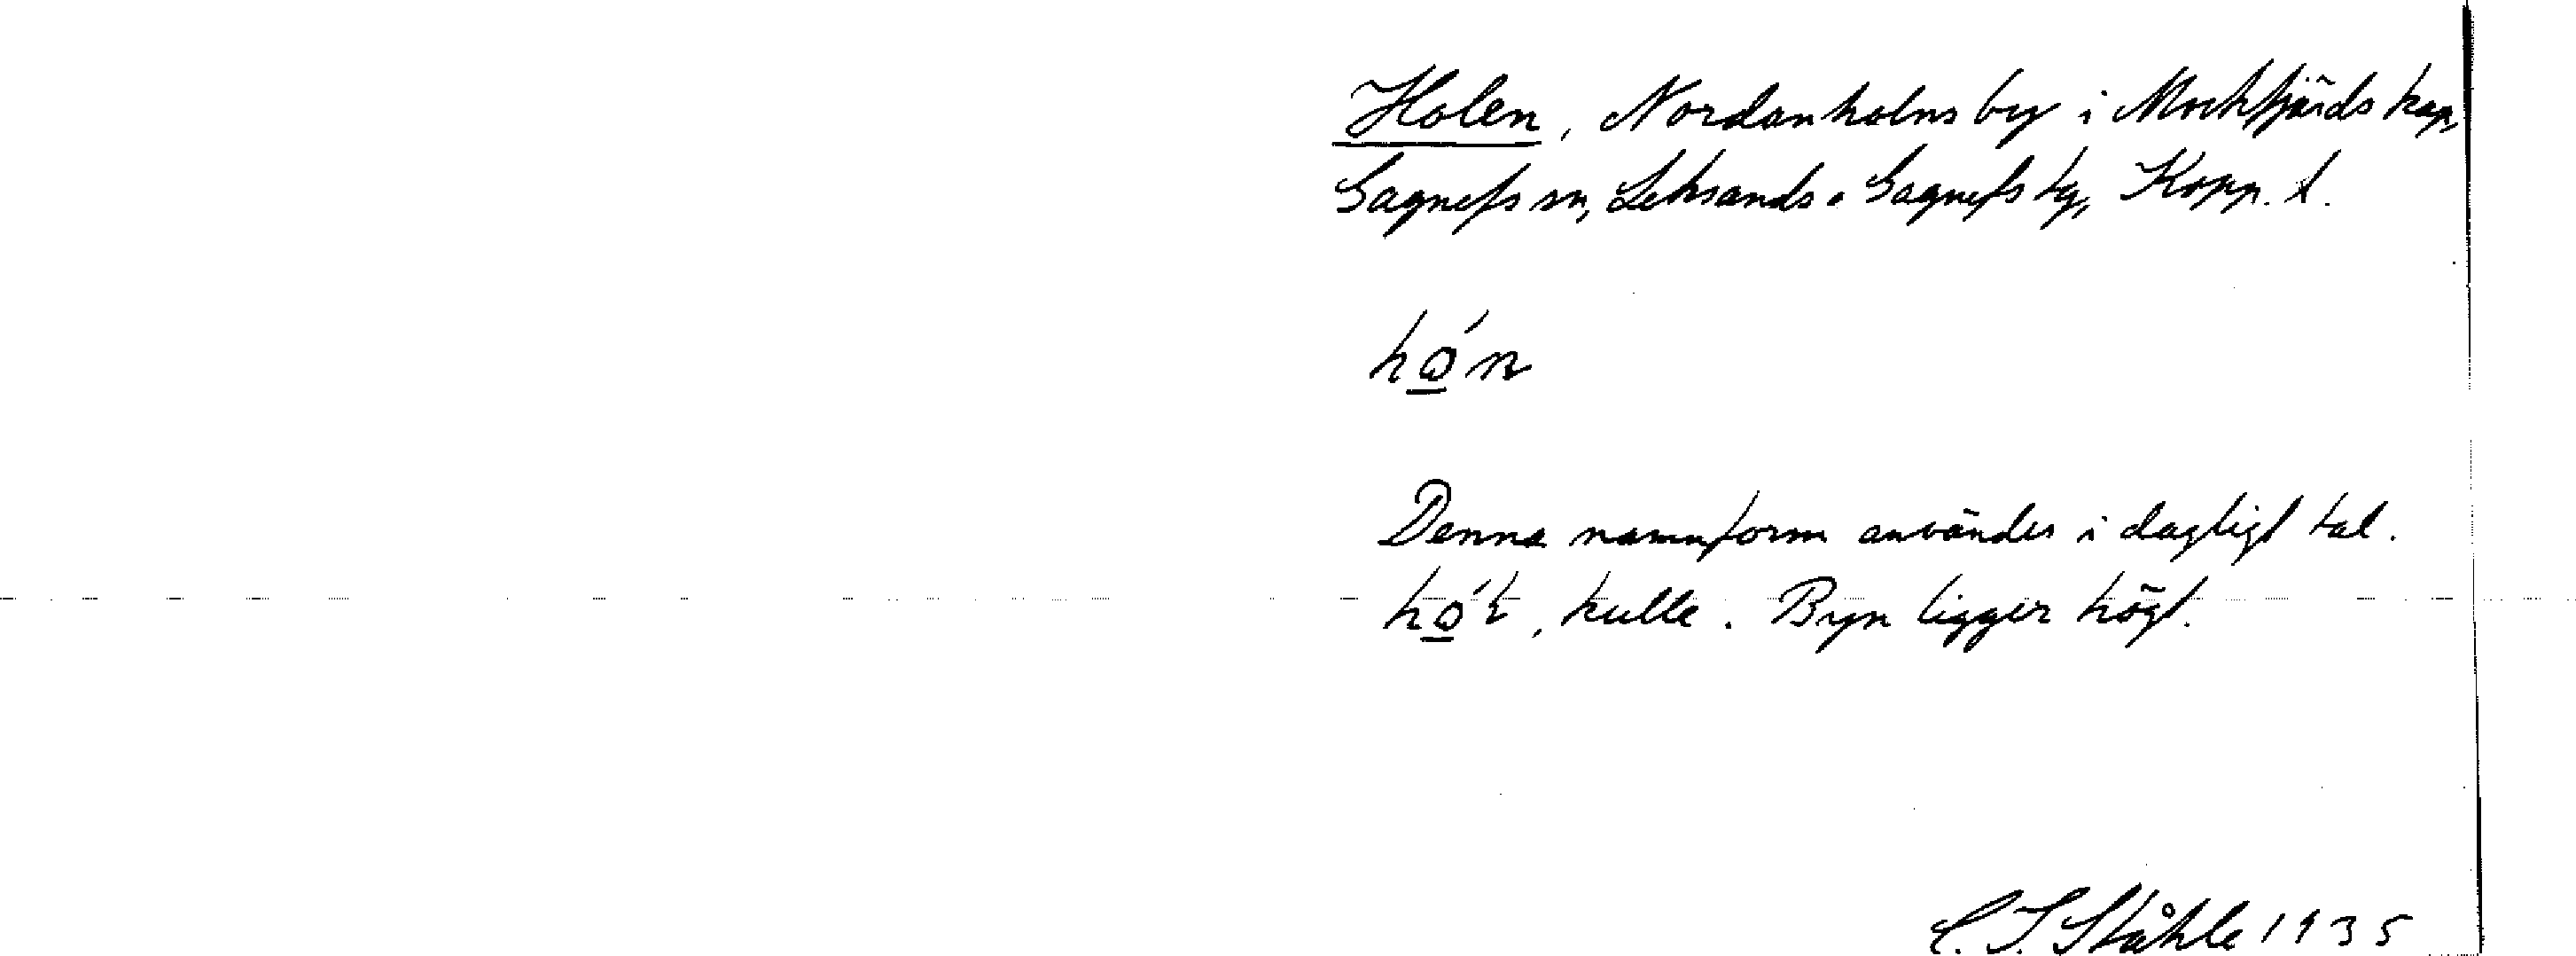 Holen, Nordanholns by i Mockfjärds kap,
Gagnefs sn, Leksands o Gagnefs tg, Kopp. l.
hǫ́n
Denna namnform användes i dagligt tal.
hǫ́l, kulle. Byn ligger högt.
C. I. Ståhle 1935